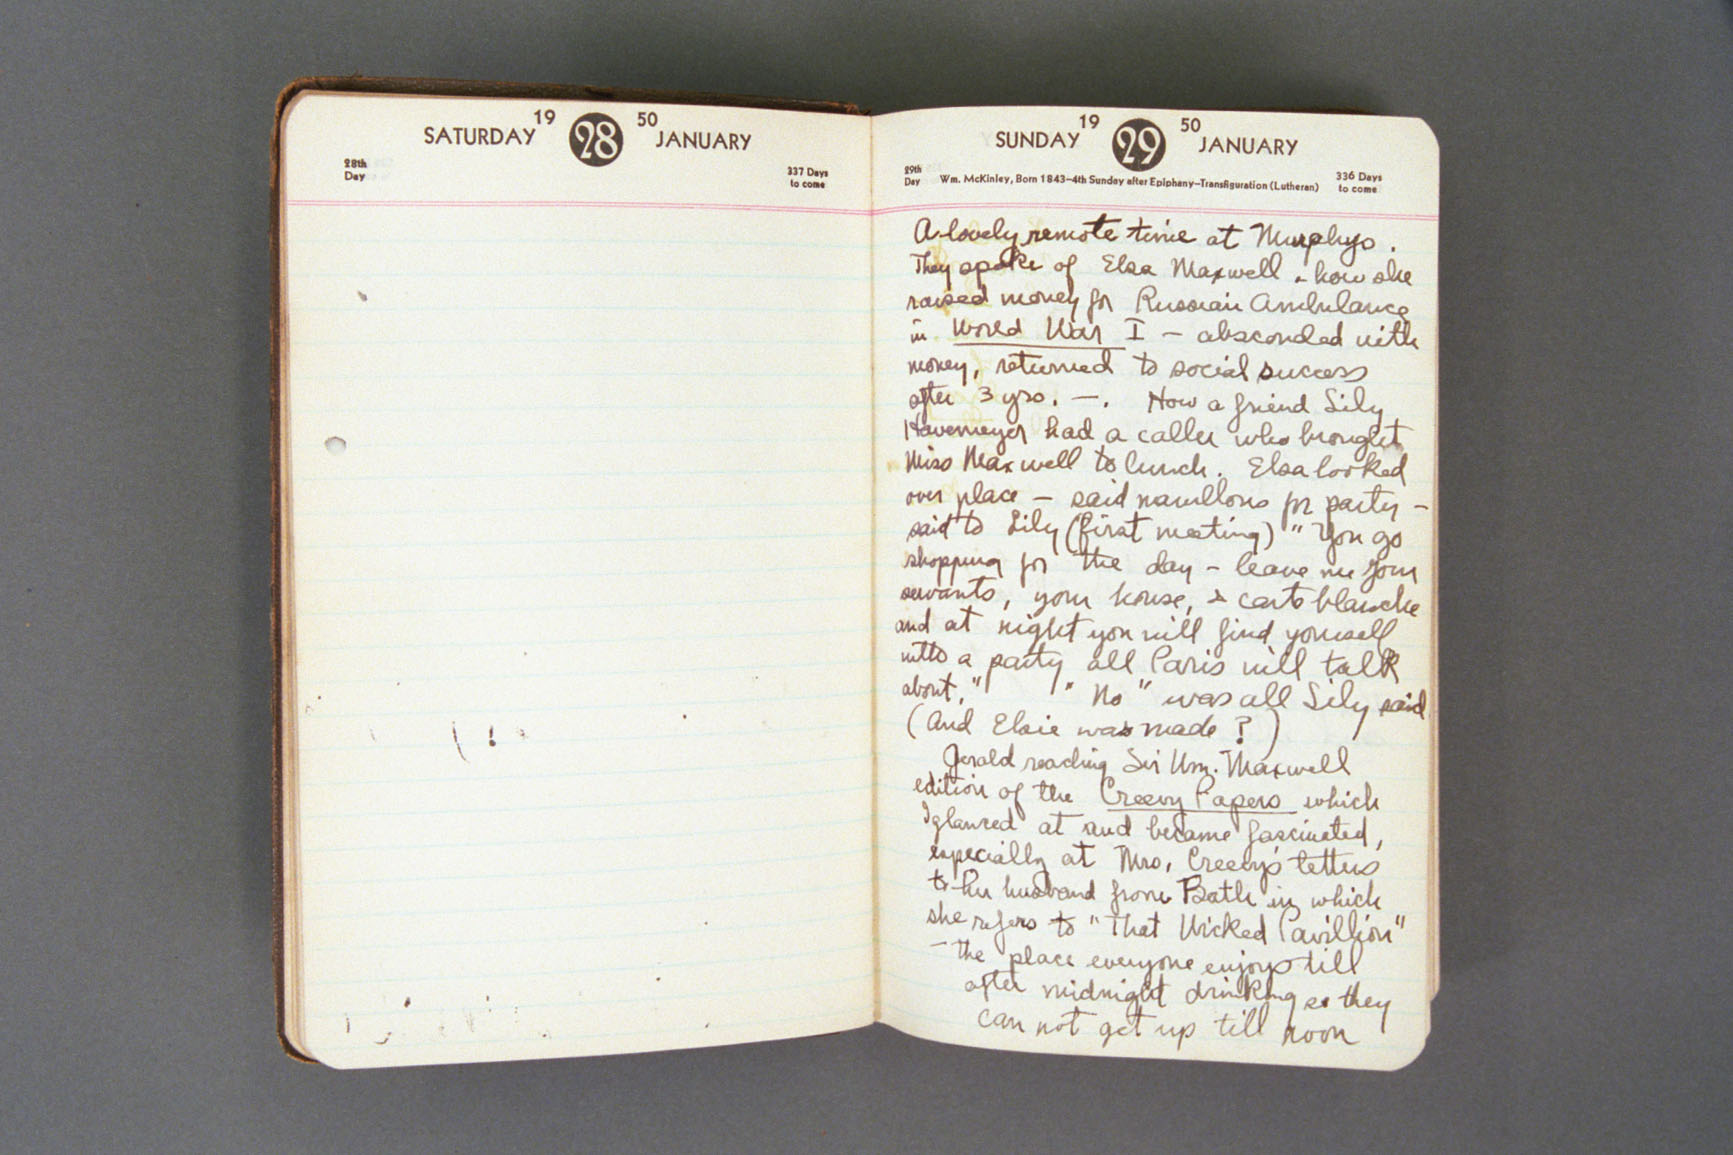 SATURDAY 19 28 50 JANUARY
28th Day
337 Days to come
SUNDAY 19 29 50 JANUARY
29th Day
Wm. McKinley, Born 1843—4th Sunday after Epiphany—Transfiguration (Lutheran)
336 Days to come
A lovely remote time at Murphys.
They spoke of Elsa Maxwell & how she
raised money for Russian Ambulance
in World War I — absconded with
money, returned to social success
after 3 yrs. —. How a friend Lily
Havemeyer had a caller who brought
Miss Maxwell to lunch. Elsa looked
over place — said marvellous for party —
said to Lily (first meeting) "You go
shopping for the day — leave me your
servants, your house, & carte blanche
and at night you will find yourself
with a party all Paris will talk
about." "No" was all Lily said
(And Elsie was made?)
Gerald reading Sir Wm. Maxwell
edition of the Creevy Papers which
I glanced at and became fascinated,
especially at Mrs. Creevy's letters
to her husband from Bath in which
she refers to "That Wicked Pavillion"
— the place everyone enjoys till
after midnight drinking so they
can not get up till noon